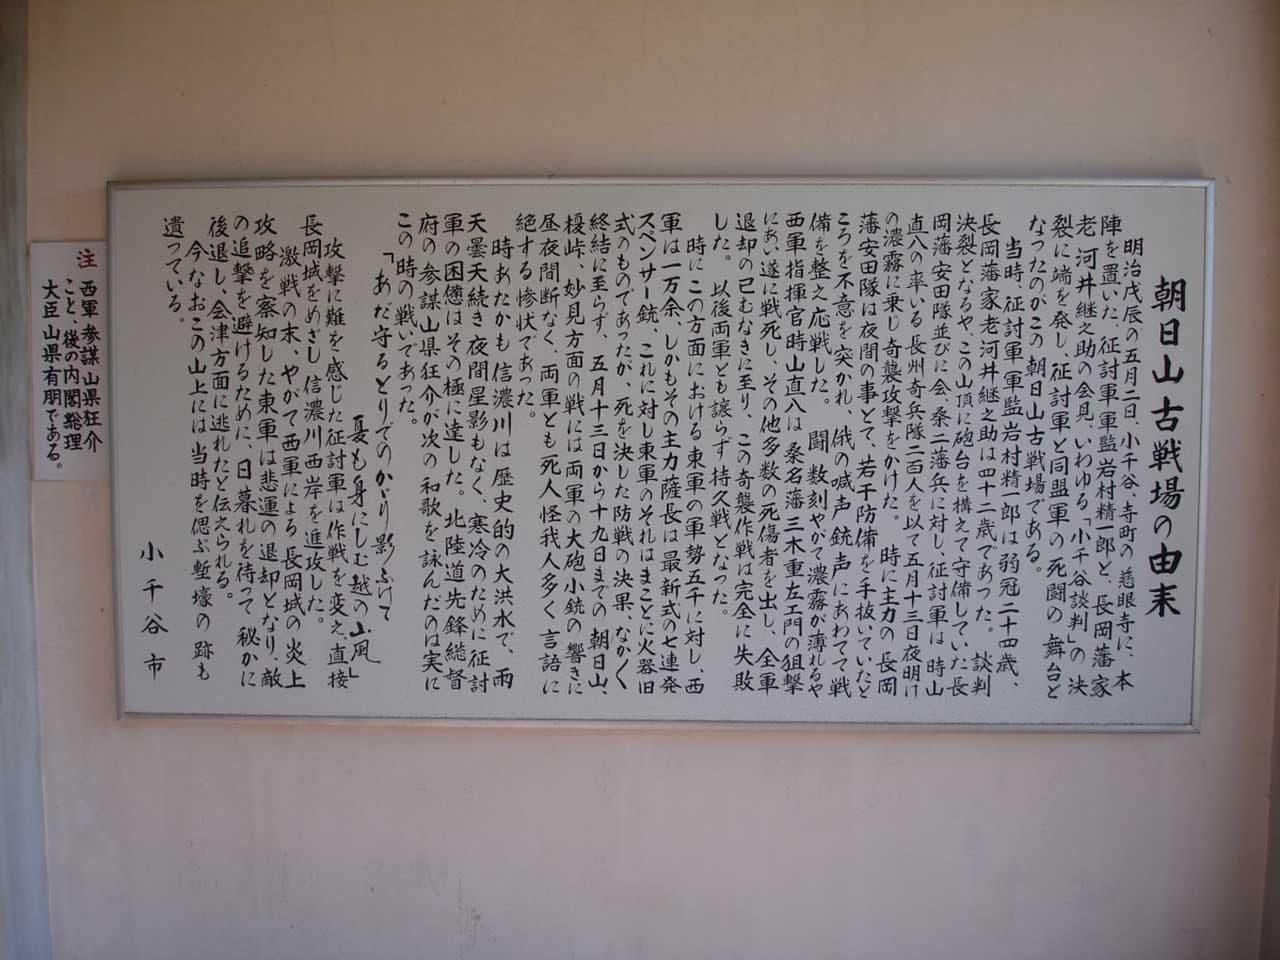 朝日山古戦場の由来
明治戊辰の五月二日、小千谷、寺町の慈眼寺に、本
陣を置いた、征討軍軍監岩村精一郎と、長岡藩家
老 河井継之助の会見、いわゆる「小千谷談判」の決
裂に端を発し、征討軍と同盟軍の死闘の舞台と
なったのがこの朝日山古戦場である。
当時、征討軍軍監岩村精一郎は弱冠二十四歳、
長岡藩家老河井継之助は四十二歳であった。談判
決裂となるや、この山頂に砲台を構えて守備していた長
岡藩 安田隊並びに会、桑二藩兵に対し、征討軍は 時山
直八の率いる長州奇兵隊二百人を以て五月十三日夜明け
の濃霧に乗じ奇襲攻撃をかけた。 時に主力の長岡
藩安田隊は夜間の事とて、若干防備を手抜いていたと
ころを不意を突かれ、俄の喊声銃声にあわてて戦
備を整え応戦した。 闘 数刻やがて濃霧が薄れるや
西軍指揮官時山直八は 桑名藩三木重左エ門の狙撃
にあい遂に戦死し、その他多数の死傷者を出し、全軍
退却の已むなきに至り、この奇襲作戦は完全に失敗
した。 以後両軍とも譲らず 持久戦となった。
時に この方面における東軍の軍勢五千に対し、西
軍は一万余、しかもその主力薩長は最新式の七連発
スペンサー銃、これに対し東軍のそれはまことに火器旧
式のものであったが、死を決した防戦の決果、なかく
終結に至らず、 五月十三日から十九日までの 朝日山、
榎峠、妙見方面の戦には両軍の大砲小銃の 響きに
昼夜間断なく、両軍とも死人怪我人多く 言語に
絶する惨状であった。
時あたかも 信濃川は 歴史的の大洪水で、 雨
天曇天続き夜間星影もなく、寒冷のために征討
軍の困憊はその極に達した。 北陸道先鋒総督
府の参謀山県狂介が次の和歌を詠んだのは実に
この時の戦いであった。
「あだ守るとりでのかゞり影ふけて
夏も身にしむ越の山風」
攻撃に難を感じた征討軍は作戦を変え、直接
長岡城をめざし信濃川西岸を進攻した。
激戦の末、やがて西軍による 長岡城の炎上
攻略を察知した東軍は悲運の退却となり、敵
の追撃を避けるために、日暮れを待って 秘かに
後退し、会津方面に逃れたと伝えられる。
今なおこの山上には 当時を偲ぶ塹壕の 跡も
遺っている。
小千谷市
注 西軍 参謀 山県狂介
こと、後の内閣総理
大臣 山県有朋である。